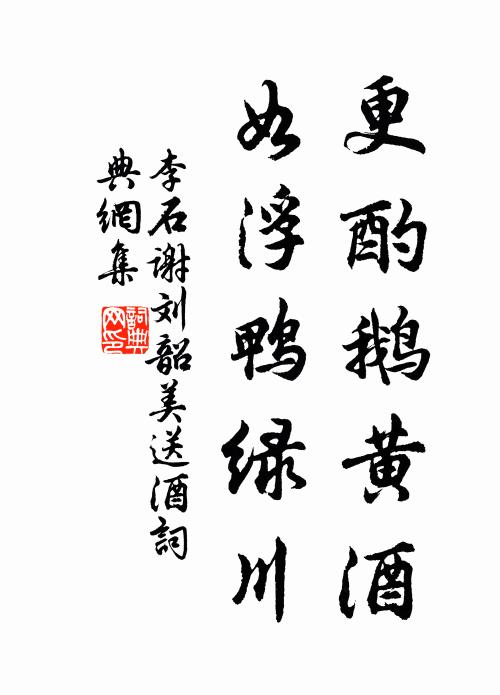 更酌鹅黄酒
如浮鸭绿川
李石谢刘韶美送酒詞
典網集
詞典
网印